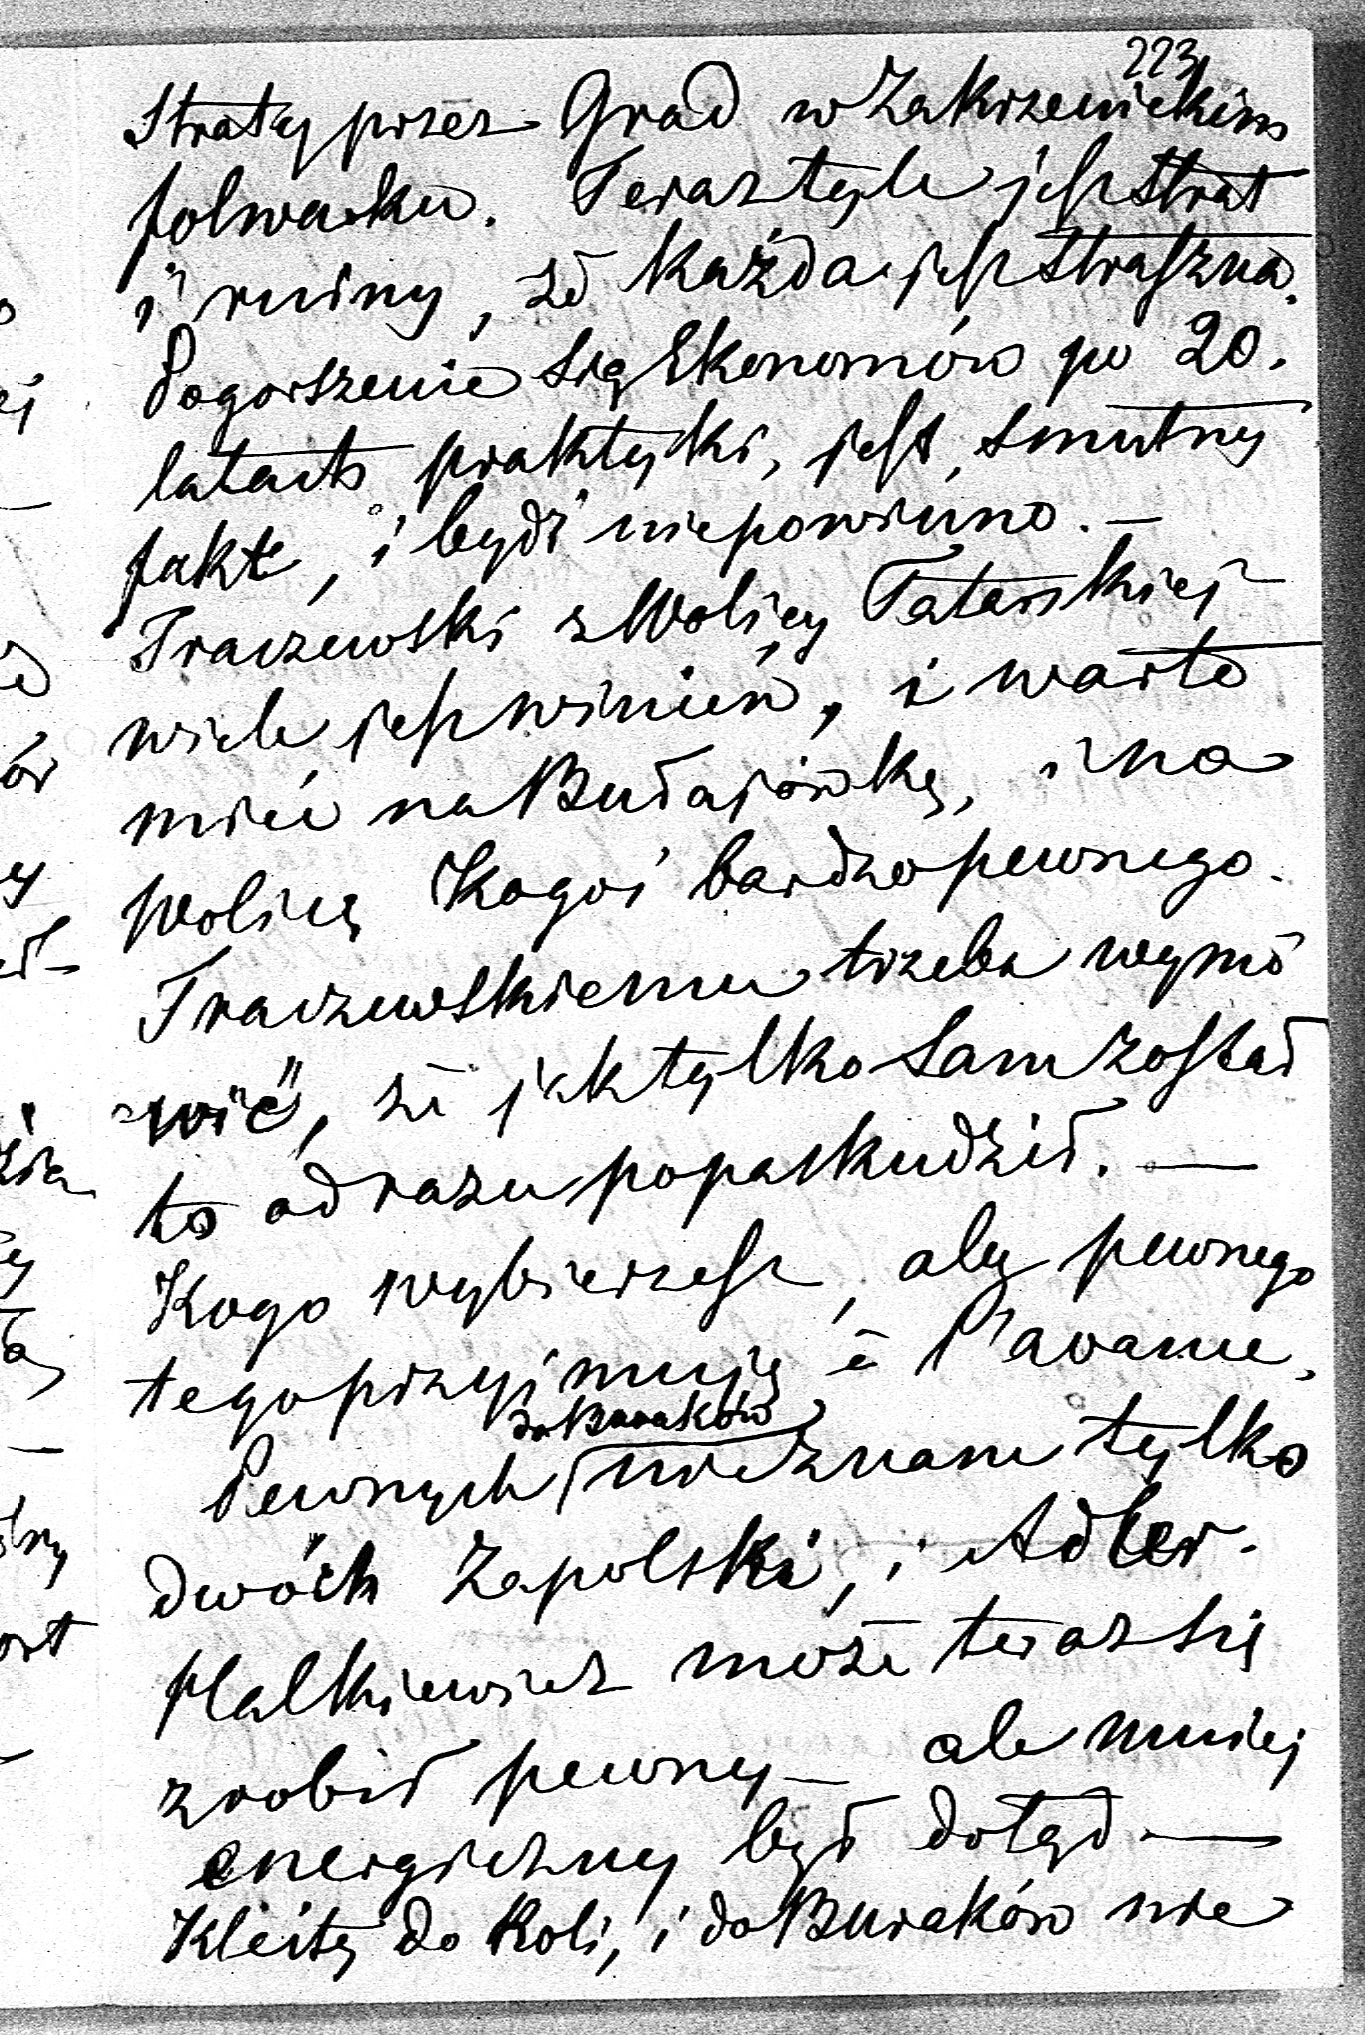 223
Straty przez Grad w Zakrzenickim
folwarku. Teraz tyle jest strat
i ruiny, że każda jest straszna.
Pogorszenie się Ekonomów po 20.
latach praktyki, jest smutny
fakt, i bydź niepowinno. —
Traczewski z Wolicy Tatarskiej
wiele jest winien, i warto
mieć na Budajówkę, i na
Wolicę Kogoś bardzo pewnego.
Traczewskiemu trzeba wymó
wić, że jak tylko sam został
to od razu popaskudził. —
Kogo wybierzesz, aby pewnego
tego przyjmuję à l'avance,
do Buraków
Pewnych nieznam tylko
dwóch Zapolski, i Adler.
Malkiewicz może teraz się
zrobił pewny — ale mniej
energiczny był dotąd —
Kleity do Roli, i do Buraków nie